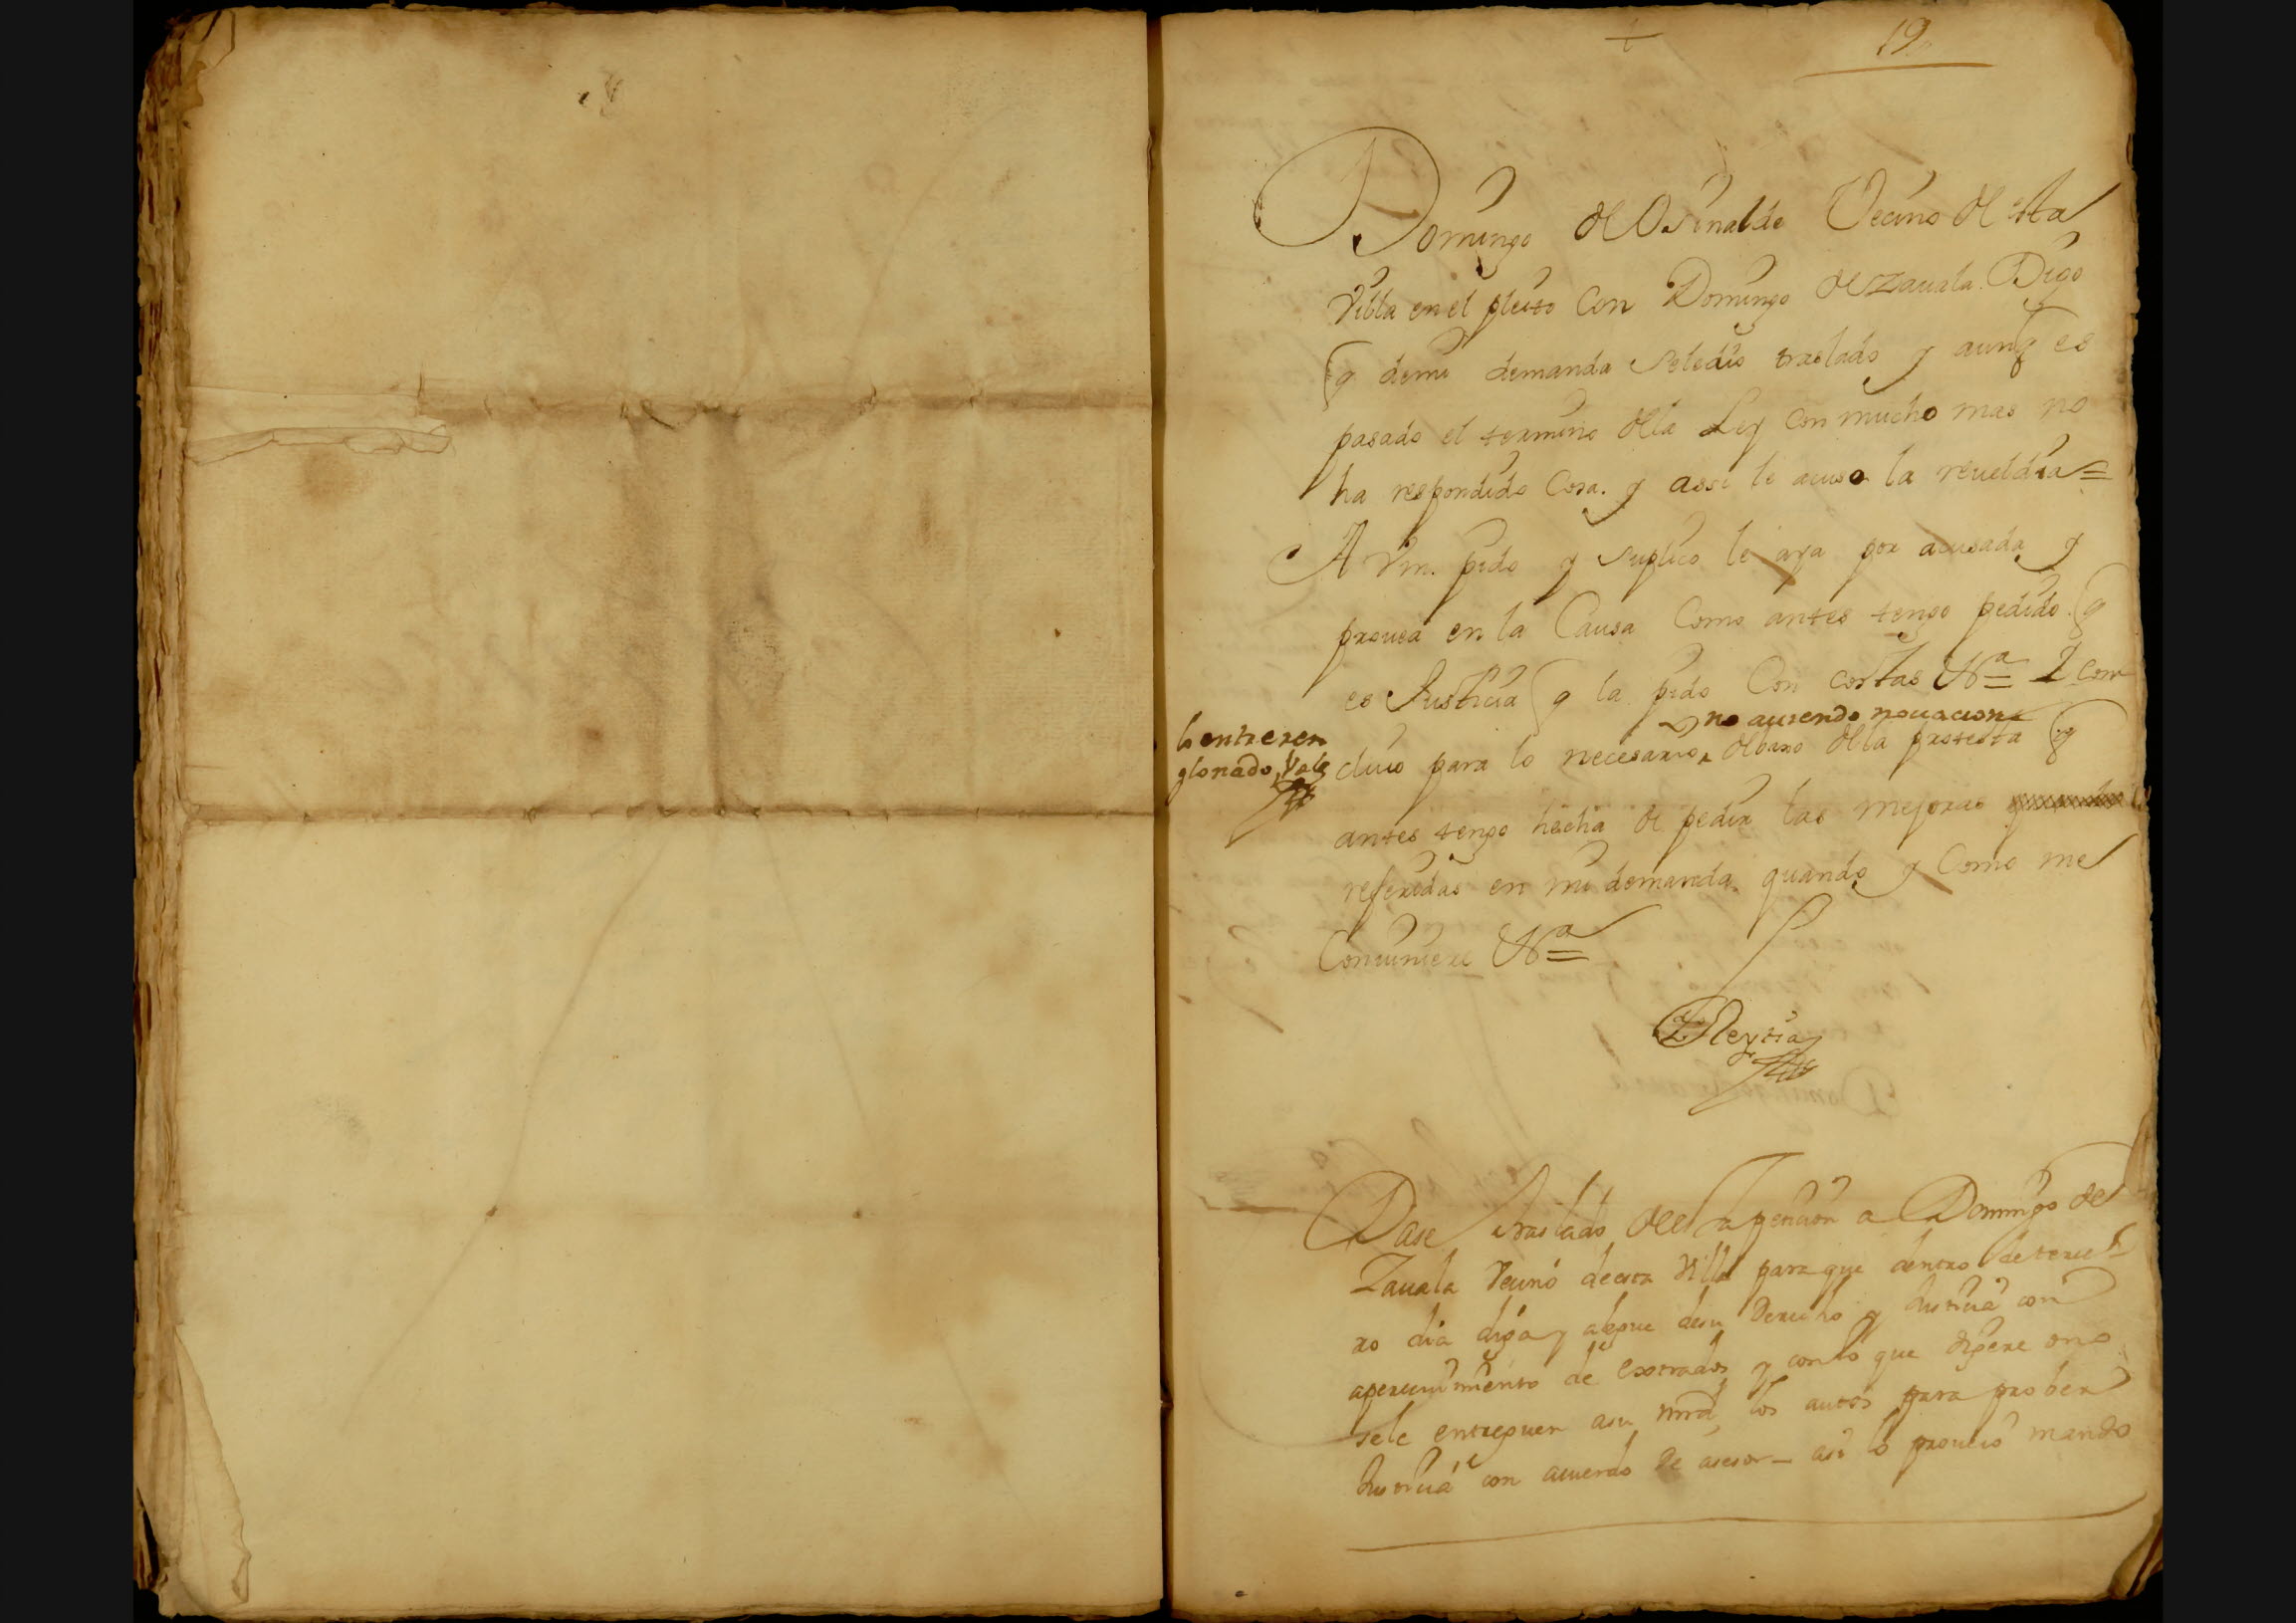 19
Domingo de Osinalde Vecino de esta
Villa en el pleito Con Domingo de Zauala. Digo
q de mi demanda se le dio traslado y aunq es
pasado el termino de la Ley con mucho mas no
ha respondido Cosa. y assi le acuso la reueldia=
A Vm. pido y suplico le aya por acusada y
prouea en la Causa Como antes tengo pedido q
es Justicia q la pido Con costas &a= I con
no auiendo nouacion
lo entreren
glonado, Vale
cluio para lo necesario, debaxo de la protesta q
antes tengo hecha de pedir las mejoras
referidas en mi demanda. quando y Como me
Conuiniere &a=
Neyria
Dase traslado de esta peticion a Domingo de
Zauala Vecino de esta Villa para que dentro de terce
ro dia diga y alegue de su Derecho y Justicia con
aperciuimiento de estrados y con lo que dijere o no
se le entreguen a su mrd los autos para prober
Justicia con acuerdo de asesor – asi lo proueio mando